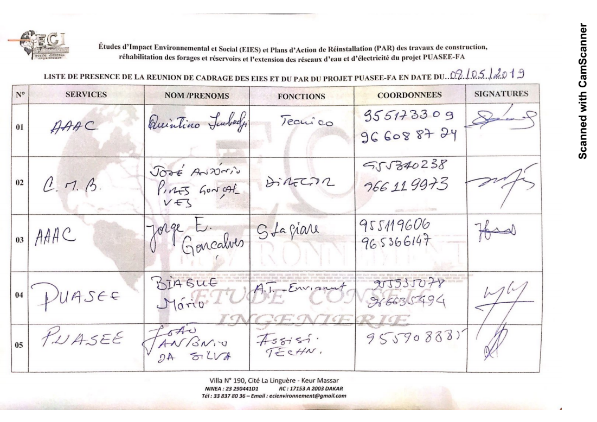 ECI
Études d'Impact Environnemental et Social (EIES) et Plans d'Action de Réinstallation (PAR) des travaux de construction,
réhabilitation des forages et réservoirs et l'extension des réseaux d'eau et d'électricité du projet PUASEE-FA
LISTE DE PRESENCE DE LA REUNION DE CADRAGE DES EIES ET DU PAR DU PROJET PUASEE-FA EN DATE DU..02/05/2019
N° SERVICES NOM /PRENOMS FONCTIONS COORDONNEES SIGNATURES
01 AAAC Quintino Tecnico 955173309
966088724
02 C.M.B. JOSÉ ANTÓNIO PIRES GONÇALVES DIRECTOR 955340238
966119973
03 AAAC Jorge E. Gonçalves Stagiare 955119606
965366147
04 PUASEE BIAGUE Mário A.T.-Environt 955935078
966635494
05 PUASEE JOÃO ANTÓNIO DA SILVA ASSIST. TECHN. 955908885
ETUDE CONSEIL
INGENIERIE
Villa N° 190, Cité La Linguère - Keur Massar
NINEA : 23 2904401 RC : 17153 A 2003 DAKAR
Tél : 33 837 80 36 – Email : ecienvironnement@gmail.com
Scanned with CamScanner